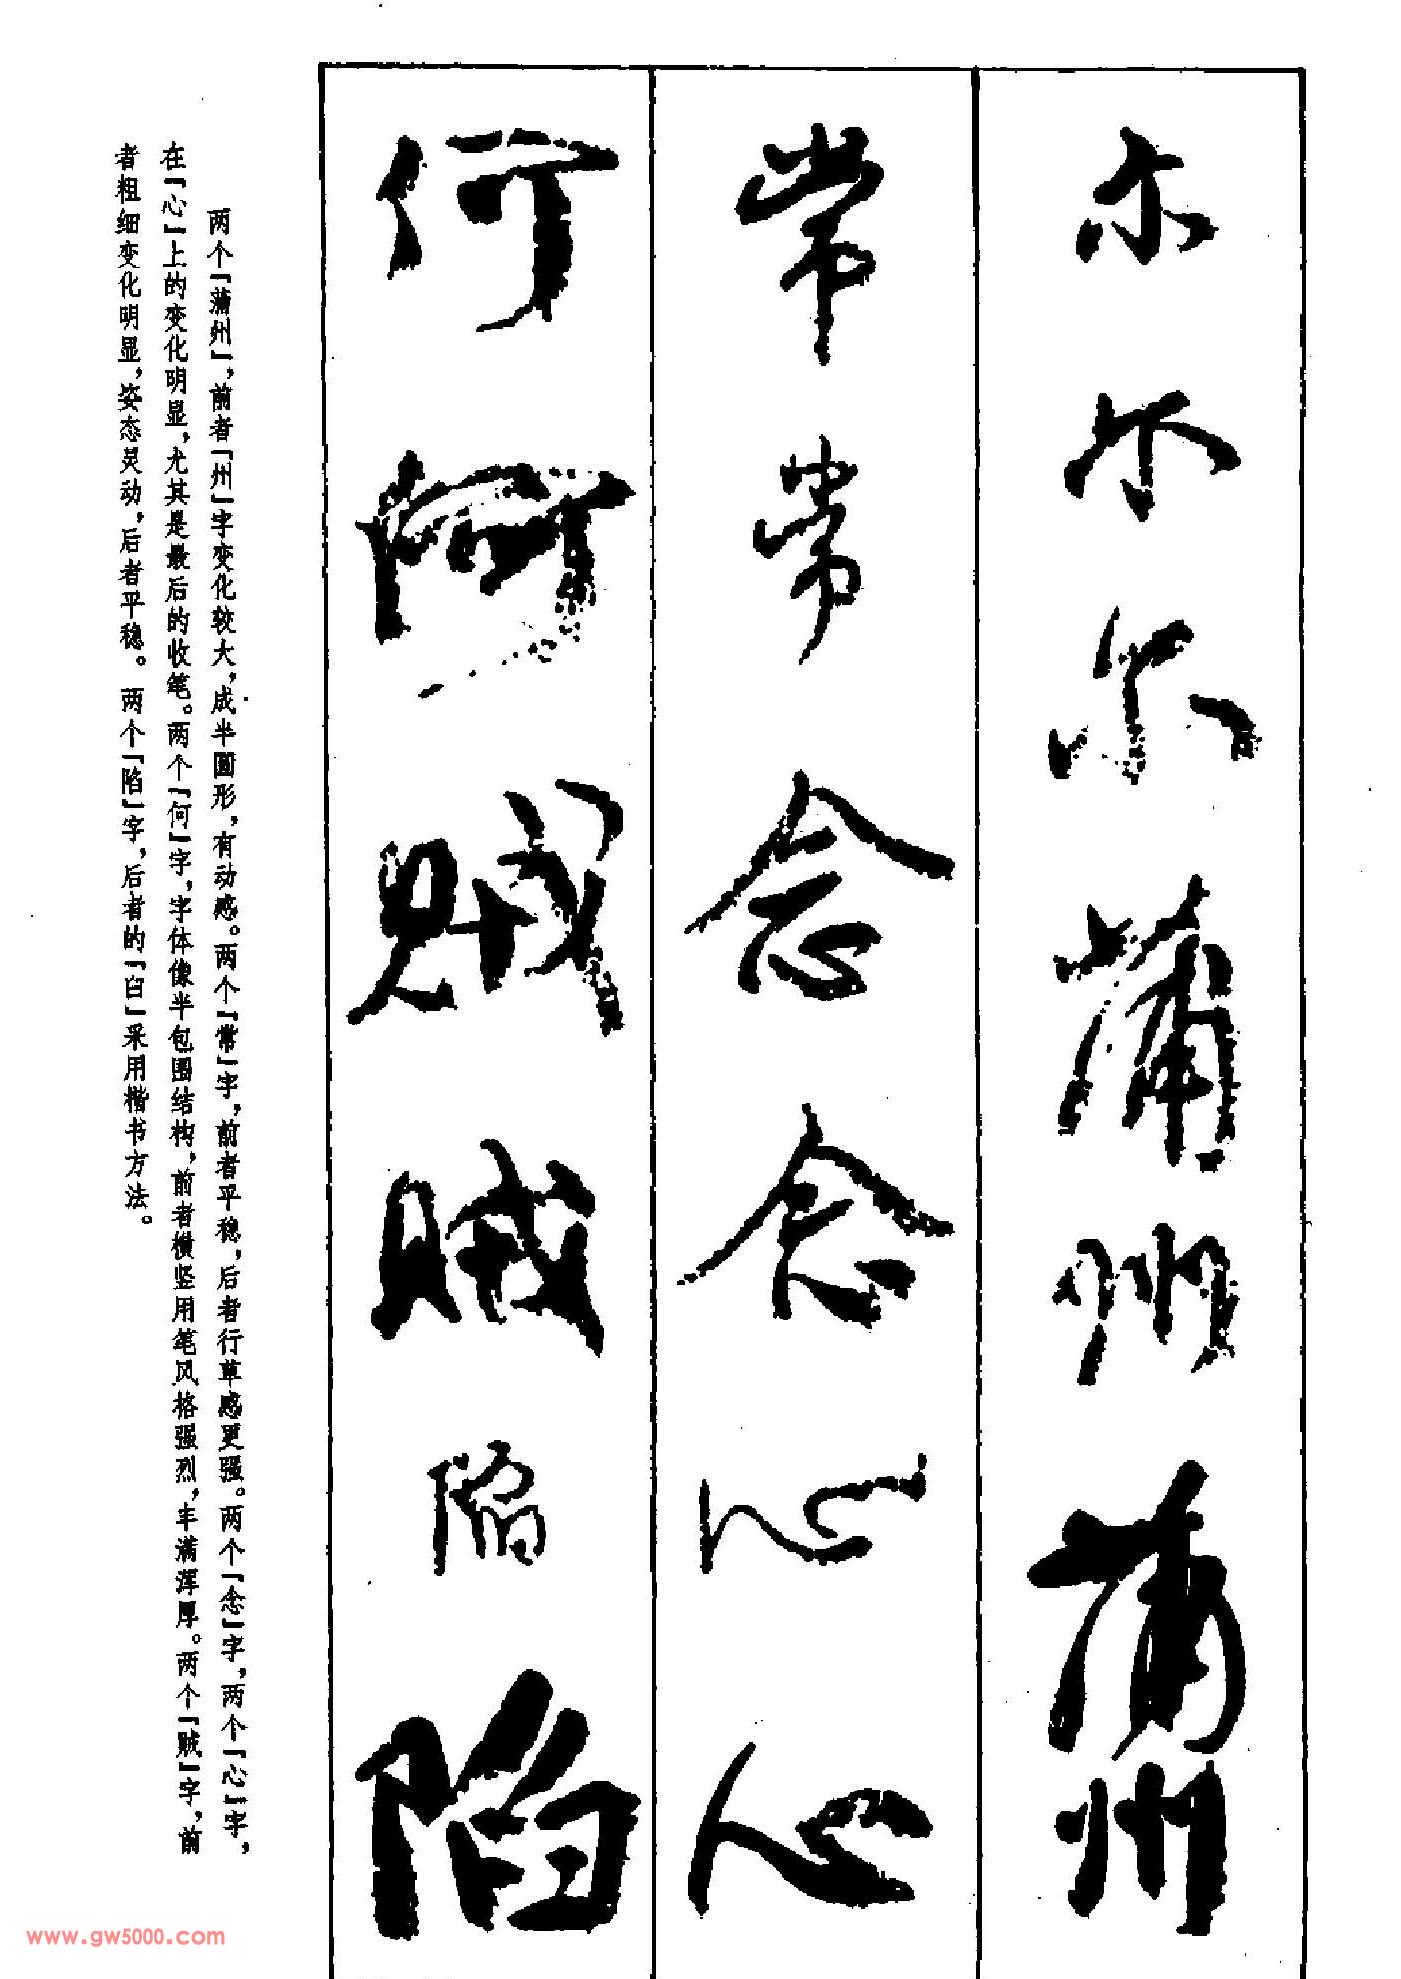 尔尔尔蒲州蒲州
常常念念心心
何何贼贼陷陷
两个「蒲州」,前者「州」字变化较大,成半圆形,有动感。两个「常」字,前者平稳,后者行草感更强。两个「念」字,两个「心」字,
在「心」上的变化明显,尤其是最后的收笔。两个「何」字,字体像半包围结构,前者横竖用笔风格强烈,丰满浑厚。两个「贼」字,前
者粗细变化明显,姿态灵动,后者平稳。两个「陷」字,后者的「臼」采用楷书方法。
www.gw5000.com